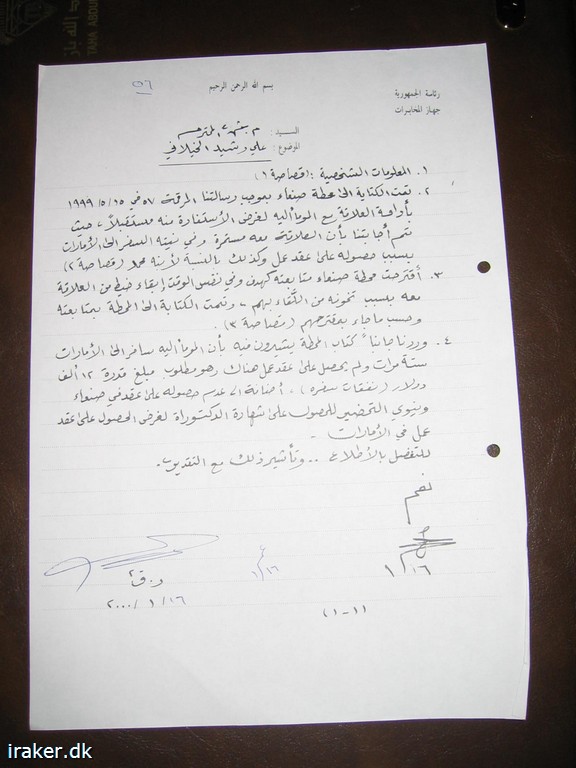 بسم الله الرحمن الرحيم
رئاسة الجمهورية
جهاز المخابرات
٥٦
السيد : م
الموضوع : علي رشيد الخيلاني
١. المعلومات الشخصية : (قصاصة ١)
٢. تمت الكتابة الى محطة صنعاء بموجب رسالتنا المرقمة ٥٧ في ١٥/٥/١٩٩٩
العلاقة مع المومأ اليه لغرض الأستفادة منه مستقبلاً، حيث
تم أجابتنا بأن العلاقة معه مستمرة وفي نيته السفر الى الأمارات
بسبب حصوله على عقد عمل وكذلك بالنسبة لأبنه محمد (قصاصة ٢)
٣. أقترحت محطة صنعاء متابعته كهدف وفي نفس الوقت إبقاء خيط من العلاقة
معه بسبب من اللقاء بهم - وتمت الكتابة الى المحطة بمتابعته
وحسب ماجاء بمقترحهم (قصاصة ٣).
٤. وردنا جانباً كتاب المحطة يشيرون فيه بأن المومأ اليه سافر الى الأمارات
ستة مرات ولم يحصل على عقد عمل هناك وهو مطلوب مبلغ قدره ١٢ ألف
دولار (نفقات سفره) - أضافة الى عدم حصوله على عقد في صنعاء
وينوي التحضير للحصول على شهادة الدكتوراة لغرض الحصول على عقد
عمل في الأمارات -
للتفضل بالأطلاع .. وتأشير ذلك مع التقدير.
نعم
١/١٦
١/١٦
١٦/١/٢٠٠٠
(١-١)
iraker.dk